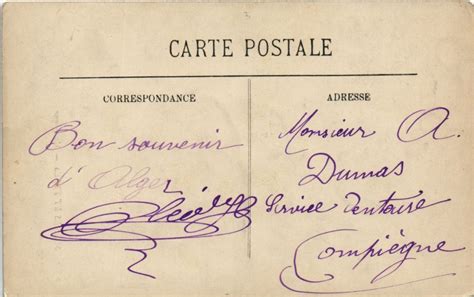 CARTE POSTALE
CORRESPONDANCE
Bon souvenir
d'Alger
ADRESSE
Monsieur A.
Dumas
Service Dentaire
Compiègne